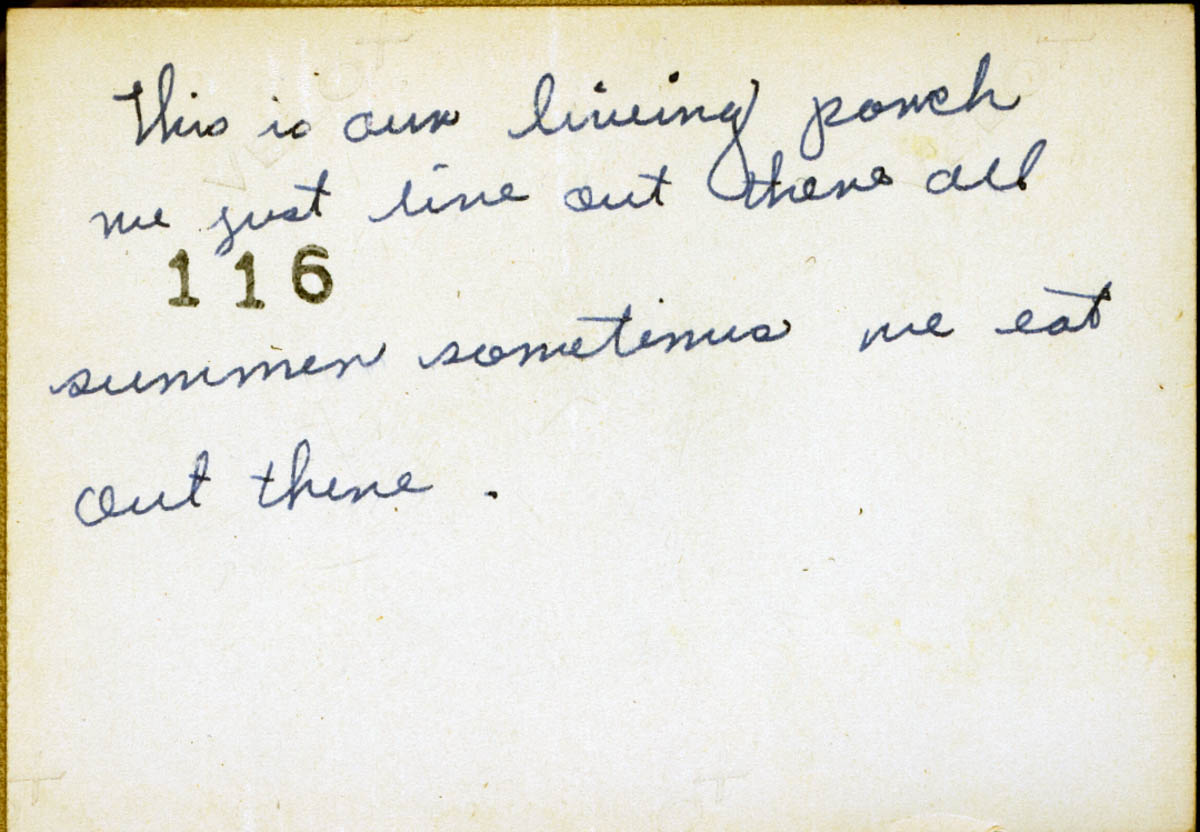 This is our living porch
we just live out there all
116
summer sometimes we eat
out there.